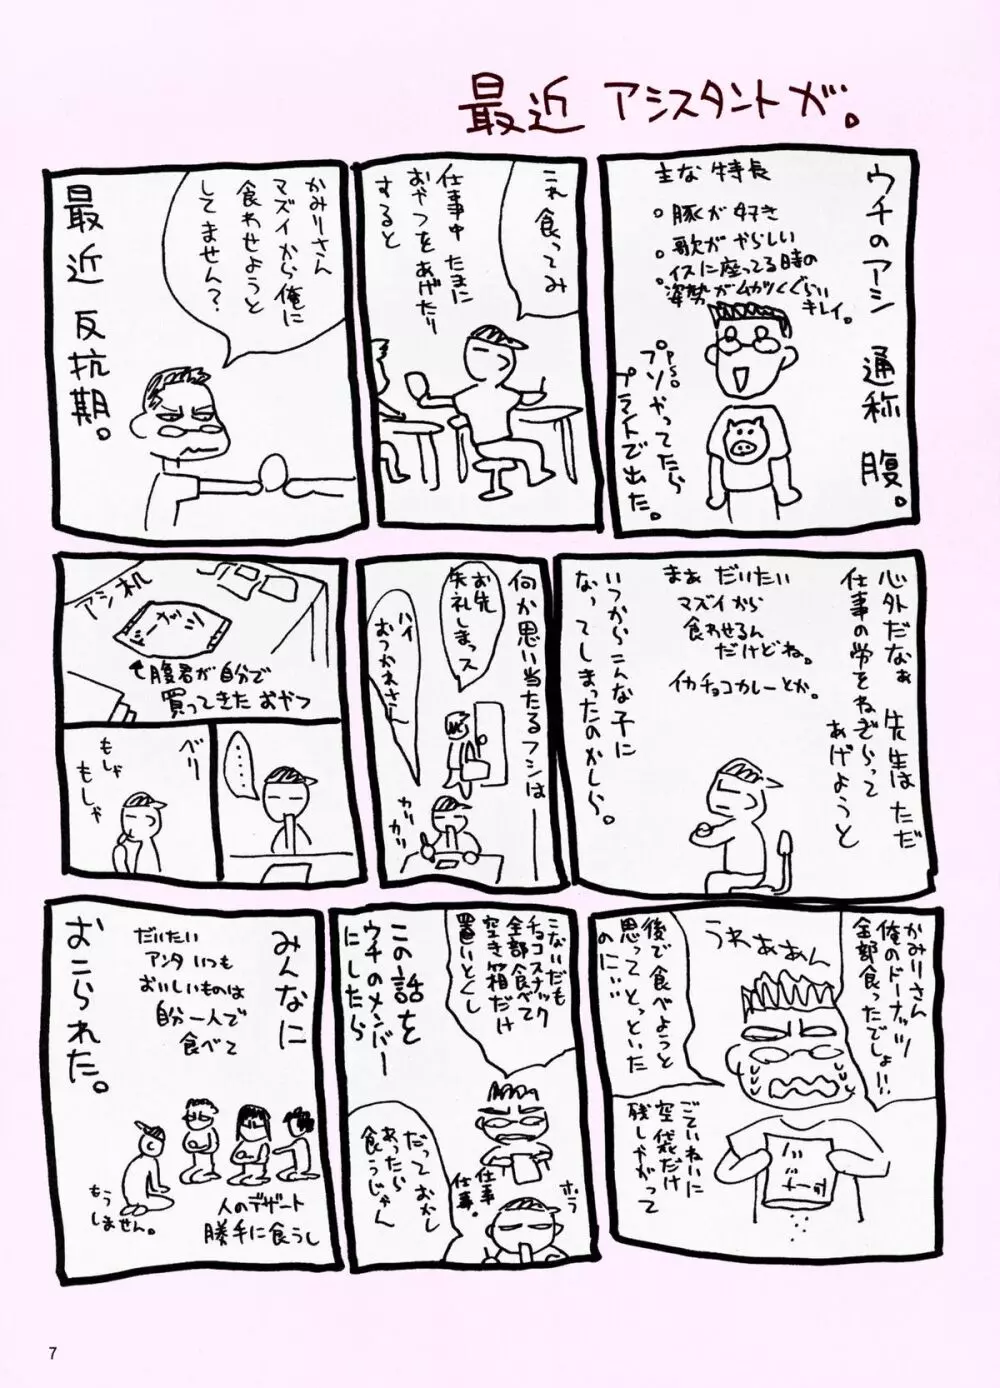 最近 アシスタントが。
ウチのアシ 通称 腹。
主な特長
。豚が好き
。歌がやらしい
。イスに座ってる時の
姿勢がムカツくぐらい
キレイ。
プリンやってたら
プラントで出た。
これ食ってみ
仕事中 たまに
おやつをあげたり
すると
かみりさん
マズイから俺に
食わせようと
してません?
最近 反抗期。
心外だなぁ 先生はただ
仕事の労をねぎらって
あげようと
まぁ だいたい
マズイから
食わせるん
だけどね。
イカチョコカレーとか。
いつからこんな子に
なってしまったのかしら。
何か思い当たるフシは
お先
失礼しまっス
ハイ
おつかれさん
カリ
カリ
アシ机
腹君が自分で
買ってきた おやつ
……
ベリ
もしゃ
もしゃ
かみりさん
俺のドーナッツ
全部食ったでしょ!!
うわぁあん
後で食べようと
思って とっといた
のに…
ごていねいに
空袋だけ
残しやがって
こないだも
チョコスナック
全部食べて
空き箱だけ
置いとくし
ホラ
仕事
仕事。
だって おかし
あったら
食うじゃん
この話を
ウチのメンバー
にしたら
みんなに
だいたい
アンタ いつも
おいしいものは
自分一人で
食べて
人のデザート
勝手に食うし
もう
しません。
おこられた。
7